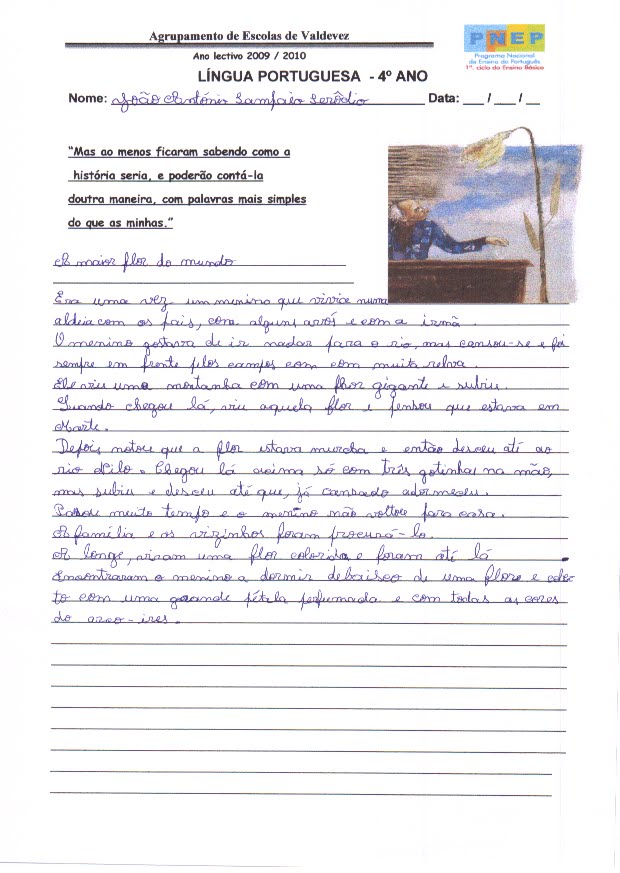 Agrupamento de Escolas de Valdevez
Ano lectivo 2009 / 2010
LÍNGUA PORTUGUESA - 4º ANO
PNEP
Programa Nacional
de Ensino do Português
1º. ciclo do Ensino Básico
Nome: João António Sampaio Serôdio Data: ___ / ___ / __
"Mas ao menos ficaram sabendo como a
história seria, e poderão contá-la
doutra maneira, com palavras mais simples
do que as minhas."
A maior flor do mundo
Era uma vez um menino que vivice numa
aldeia com os pais, com alguns avós e com a irmã.
O menino gostava de ir nadar para o rio, mas cansou-se e foi
sempre em frente pelos campos com com muita relva.
Ele viu uma montanha com uma flhor gigante e subiu.
Quando chegou lá, viu aquela flor e pensou que estava em
Marte.
Depois notou que a flor estava murcha e então desceu até ao
rio Nilo. Chegou lá acima só com três gotinhas na mão,
mas subiu e desceu até que, já cansado adormeceu.
Passou muito tempo e o menino não voltou para casa.
A família e os vizinhos foram procurá-lo.
A longe, viram uma flor colorida e foram até lá.
Encontraram o menino a dormir debaixo de uma flore e cober
to com uma grande pétala perfumada e com todas as cores
do arco-ires.